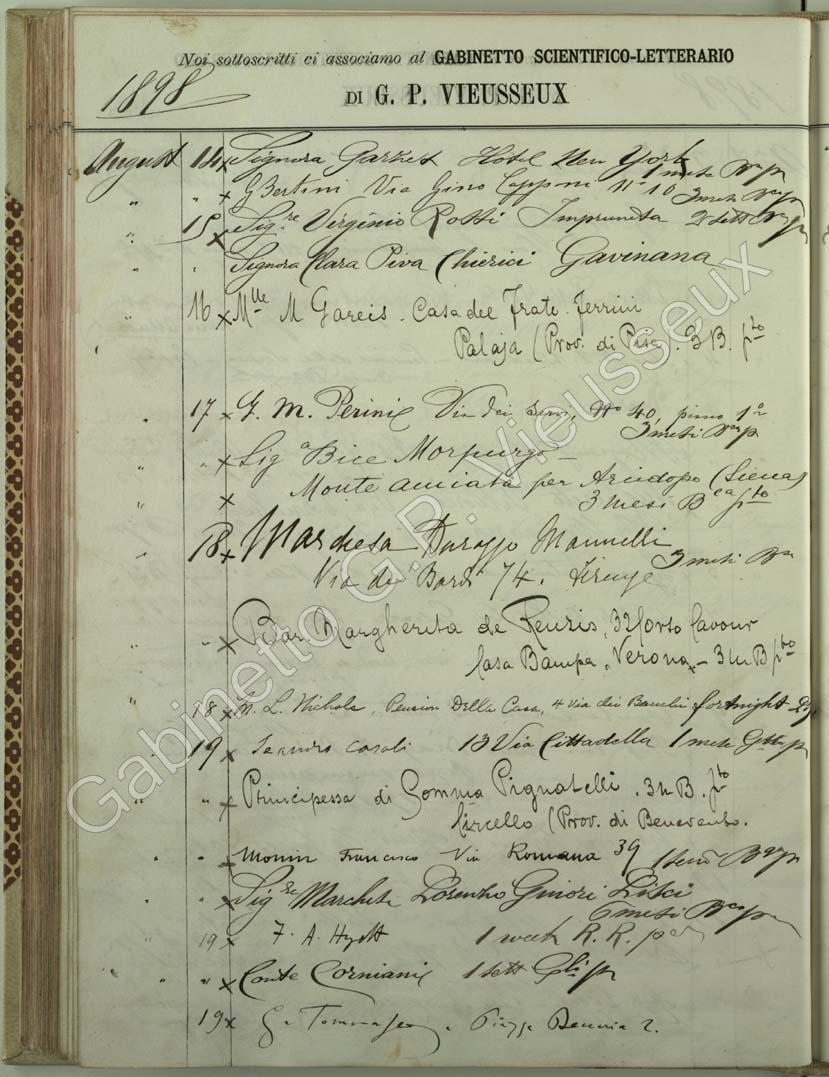 Noi sottoscritti ci associamo al GABINETTO SCIENTIFICO-LETTERARIO
1898
DI G. P. VIEUSSEUX
August 14 x Signora Hotel New York 1 mese
" " x G Bertini Via Gino Capponi N° 10 3 mesi
" 15 x Sig.re Virginio Rossi Impruneta 2 sett
" " Signora Clara Piva Chierici Gavinana
" 16 x Mlle M Gareis. Casa del Frate. Ferrini
Palaja (Prov. di Pisa). 3 B. pto
" 17 x G. M. Perini Via dei Servi, No 40, piano 1o
3 mesi
" " x Sig a Bice Morpurgo
x Monte amiata per Arcidosso (Siena)
3 mesi B ca pto
18 x Marchesa Durazzo Mannelli
3 mesi
Via de Bardi 74. Firenze
" x Margherita de Renzis, 32 Corso Cavour
Casa Bampa, Verona - 3 m B pto
" 18 x L. Nichols, Pension Della Casa, 4 via dei Banchi fortnight
19 x Leandro Casali 13 Via Cittadella 1 mese
" x Principessa di Somma Pignatelli. 3 m B. pto
Circello (Prov. di Benevento.
" " x Monin Francesco Via Romana 39
" x Sig re Marchese Lorenzo Ginori Lisci
6 mesi
19 x F. A. Hyett 1 week R. R.
" x Conte Corniani 1 sett
19 x Piazza
Gabinetto G.P. Vieusseux